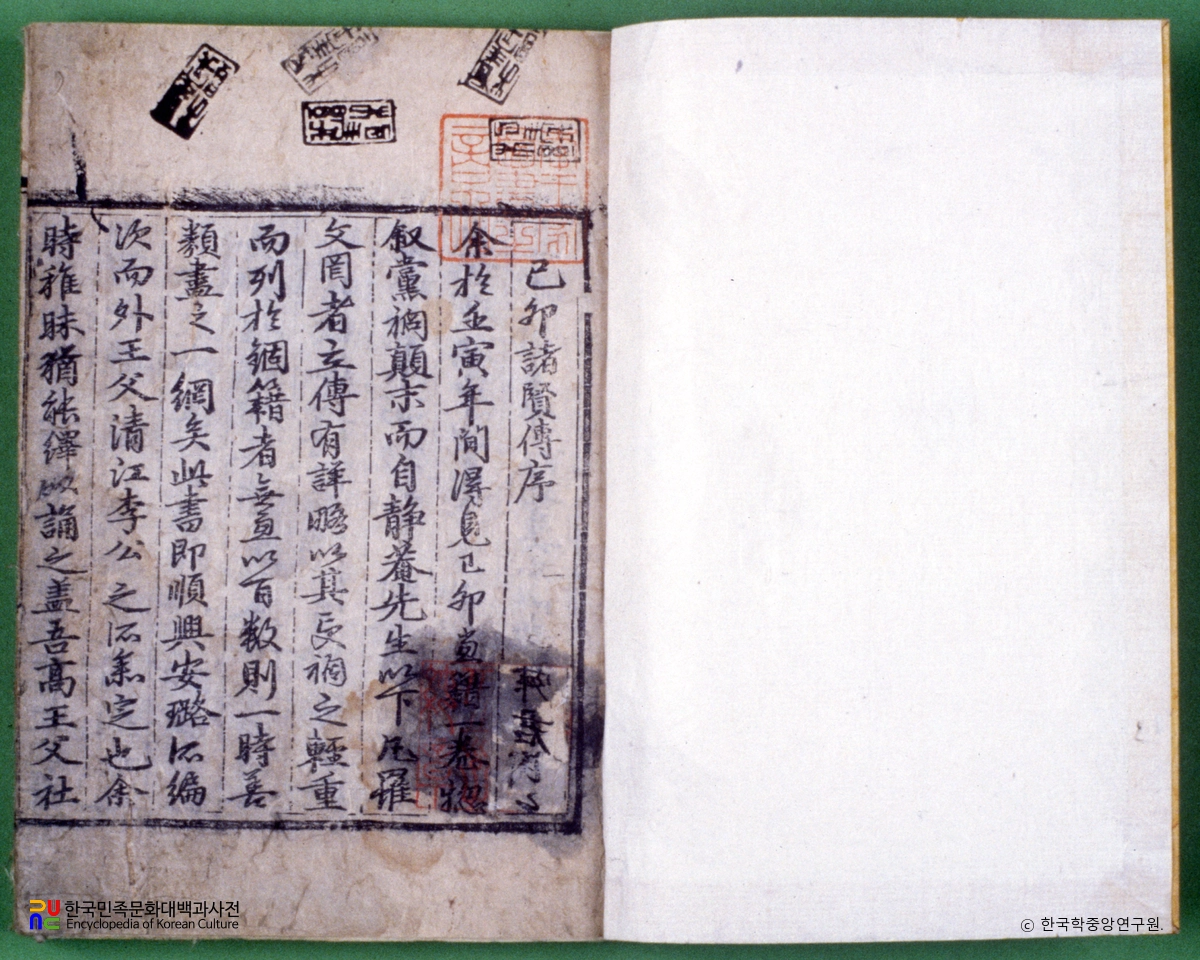 己卯諸賢傳序
余於丙寅年間得見己卯黨 一卷揔
叙黨禍顚末而自静菴先生以下凡羅
文罔者立傳有詳略以其受禍之輕重
而列於錮籍者無慮以百数則一時善
類盡之一網矣此書即順興安璐所編
次而外王父清江李公之所 定也余
時稚昧猶能繹以誦之盖吾高王父社
한국민족문화대백과사전
Encyclopedia of Korean Culture
© 한국학중앙연구원.